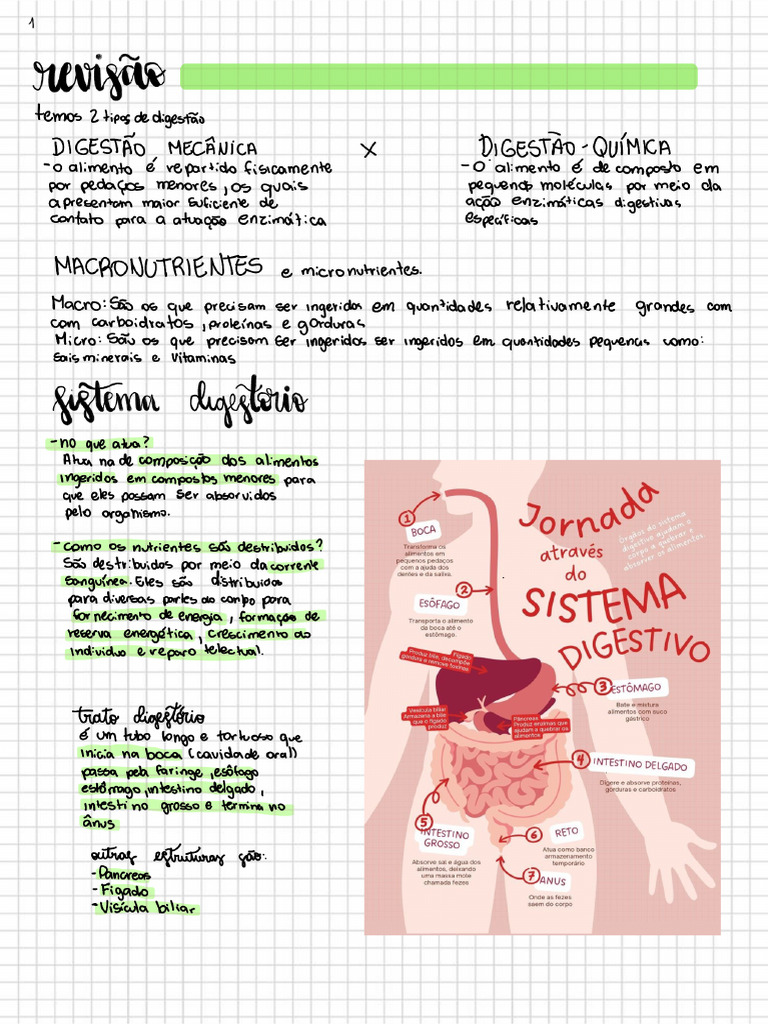 1
revisão
temos 2 tipos de digestão
DIGESTÃO MECÂNICA X DIGESTÃO-QUÍMICA
-o alimento é repartido fisicamente
por pedaços menores, os quais
apresentam maior suficiente de
contato para a atuação enzimática
-O alimento é de composto em
pequenas moléculas por meio da
ação enzimáticas digestivas
específicas
MACRONUTRIENTES e micronutrientes.
Macro: São os que precisam ser ingeridos em quantidades relativamente grandes com
com carboidratos, proleínas e gorduras
Micro: São os que precisam ser ingeridos ser ingeridos em quantidades pequenas como:
sais minerais e vitaminas
sistema digestorio
-no que atua?
Atua na de composição dos alimentos
ingeridos em compostos menores para
que eles possam ser absorvidos
pelo organismo.
-como os nutrientes são destribuidos?
São destribuidos por meio da corrente
sanguínea. Eles são distribuidos
para diversas partes do corpo para
fornecimento de energia, formação de
reserva energética, crescimento do
individuo e reparo telectual.
trato digestório
é um tubo longo e tortuoso que
inicia na boca (cavidade oral)
passa pela faringe, esôfago
estômago, intestino delgado,
intestino grosso e termina no
ânus
outras estruturas são:
-Pancreas
-Fígado
-Visícula biliar
Jornada
através
do
SISTEMA
DIGESTIVO
Órgãos do sistema
digestivo ajudam o
corpo a quebrar e
absorver os alimentos
1
BOCA
Transforma os
alimentos em
pequenos pedaços
com a ajuda dos
dentes e da saliva.
2
ESÔFAGO
Transporta o alimento
da boca até o
estômago.
Fígado
Produz bile, decompõe
gordura e remove toxinas
Vesícula biliar
Armazena a bile
que o fígado
produz
Pâncreas
Produz enzimas que
ajudam a quebrar os
alimentos
3 ESTÔMAGO
Bate e mistura
alimentos com suco
gástrico
4 INTESTINO DELGADO
Digere e absorve proteínas,
gorduras e carboidratos
5
INTESTINO
GROSSO
Absorve sal e água dos
alimentos, deixando
uma massa mole
chamada fezes
6 RETO
Atua como banco
armazenamento
temporário
7 ANUS
Onde as fezes
saem do corpo